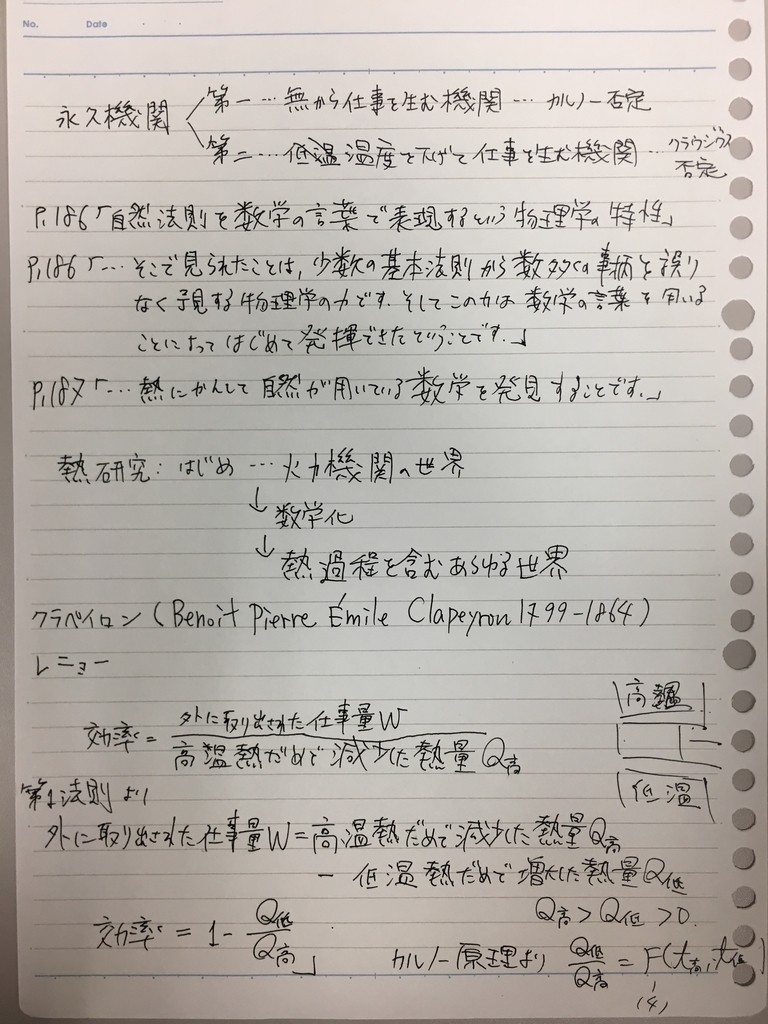 No. Date
永久機関 第一 … 無から仕事を生む機関 … カルノー否定
第二 … 低温温度を下げて仕事を生む機関 … クラウジウス
否定
P.186「自然法則を数学の言葉で表現するという物理学の特性」
P.186「… そこで見られたことは、少数の基本法則から数多くの事柄を誤り
なく予見する物理学の力です。そしてこの力は数学の言葉を用いる
ことによってはじめて発揮できたということです。」
P.187「… 熱にかんして自然が用いている数学を発見することです。」
熱研究: はじめ … 火力機関の世界
↓ 数学化
↓ 熱過程を含むあらゆる世界
クラペイロン (Benoit Pierre Émile Clapeyron 1799-1864)
レニョー
高温
効率 = 外に取り出された仕事量W / 高温熱だめで減少した熱量Q高
低温
第1法則より
外に取り出された仕事量W = 高温熱だめで減少した熱量Q高
- 低温熱だめで増大した熱量Q低
Q高 > Q低 > 0.
効率 = 1 - Q低/Q高 」
カルノー原理より Q低/Q高 = F(t高, t低)
(4)